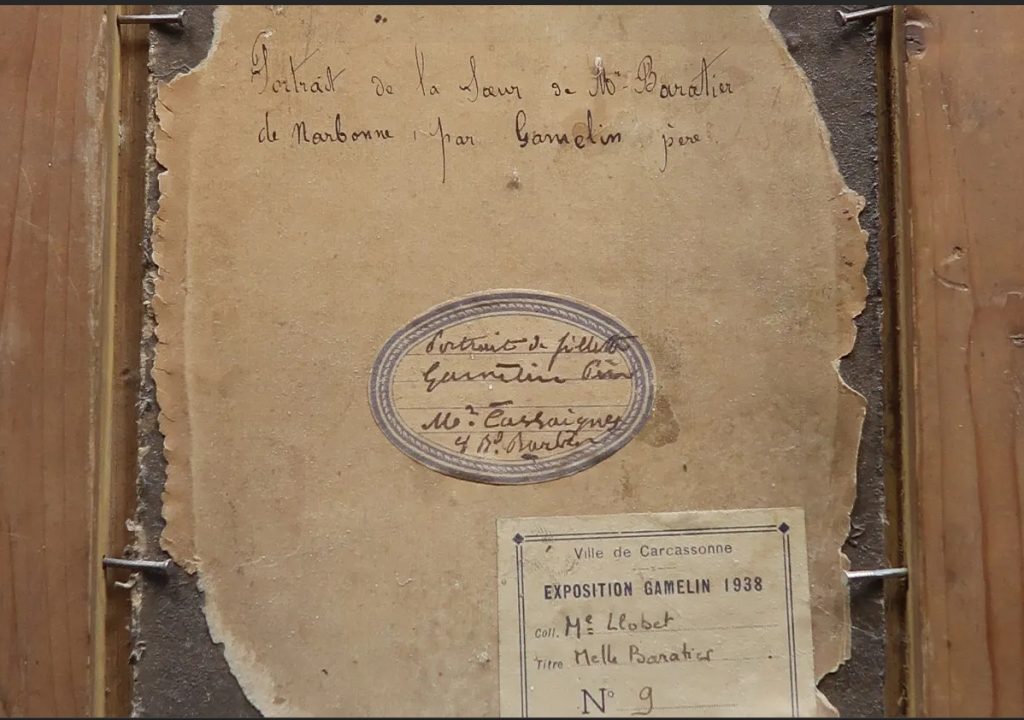 Portrait de la Sœur de Mr Baratier
de Narbonne, par Gamelin père.
Portrait de fillette
Gamelin Père
Mr. Cassaignes
4 Bd. Barbès
Ville de Carcassonne
EXPOSITION GAMELIN 1938
Coll. Me Llobet
Titre Melle Baratier
N° 9